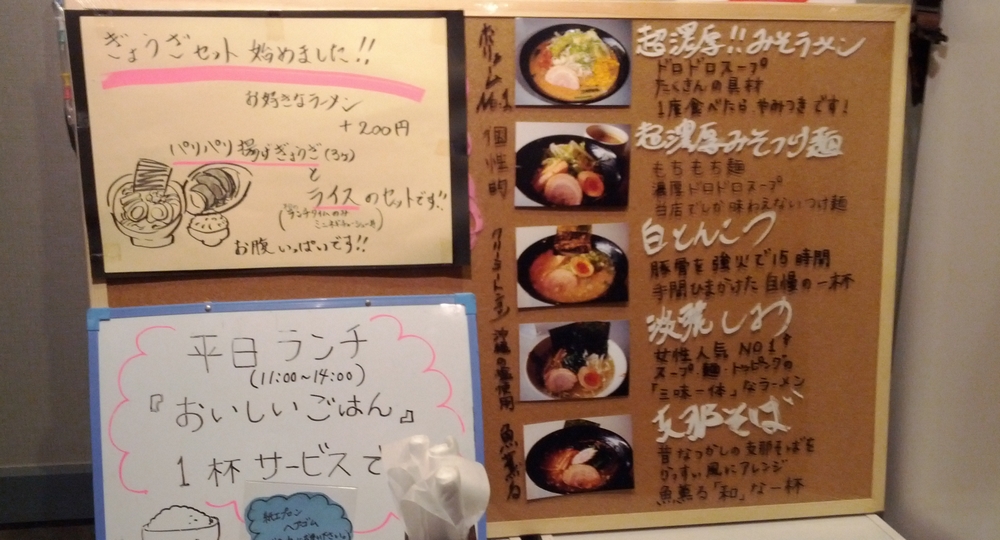 ぎょうざセット 始めました!!
お好きなラーメン
+200円
パリパリ揚げぎょうざ(3ヶ)
と
ライスのセットです!!
お腹いっぱいです!!
平日 ランチ
(11:00~14:00)
『おいしいごはん』
1杯 サービスで
紙エプロン
ヘアゴム
ボリュームNo.1
超濃厚!!みそラーメン
ドロドロスープ
たくさんの具材
1度食べたらやみつきです!
個性的
超濃厚みそつけ麺
もちもち麺
濃厚ドロドロスープ
当店でしか味わえないつけ麺
クリーミー
白とんこつ
豚骨を強火で15時間
手間ひまかけた自慢の一杯
沖縄の塩使用
琉しお
女性人気NO1
スープ・麺・トッピングの
「三味一体」なラーメン
魚薫る
支那そば
昔なつかしの支那そばを
がっすい風にアレンジ
魚薫る「和」な一杯